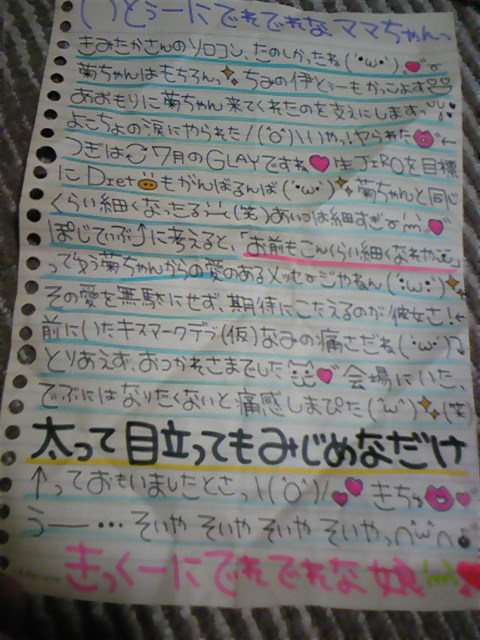 ( )とぅーにでれでれなママちゃんへ
きみたかさんのソロコン、たのしかったね(´・ω・`)
菊ちゃんはもちろんっ ちみの伊とぅーもかっこよす
あおもりに菊ちゃん来てくれたのを支えにします。
よこちょの涙にやられた!\(°o°)\いやっ、ヤられた
つぎは 7月のGLAYですね 生JIROを目標
にDietもがんばるんば(´・ω・`) 菊ちゃんと同じ
くらい細くなったるぅー(笑)あいつは細すぎ
ぽじてぃぶ↑に考えると、「お前もこんくらい細くなれや」
ってゆう菊ちゃんからの愛のあるメッセじゃねん(´・ω・`)
その愛を無駄にせず、期待にこたえるのが彼女さ!←
前にいたキスマークデブ(仮)なみの痛さだね(´・ω・`)
とりあえず、おつかれさまでした 会場にいた、
でぶにはなりたくないと痛感しまぴた(´ω`)(笑)
太って目立ってもみじめなだけ
↑っておもいましたとさっ\(°o°)/ きちっ
うー…そいや そいや そいや そいやっ
きっくーにでれでれな娘